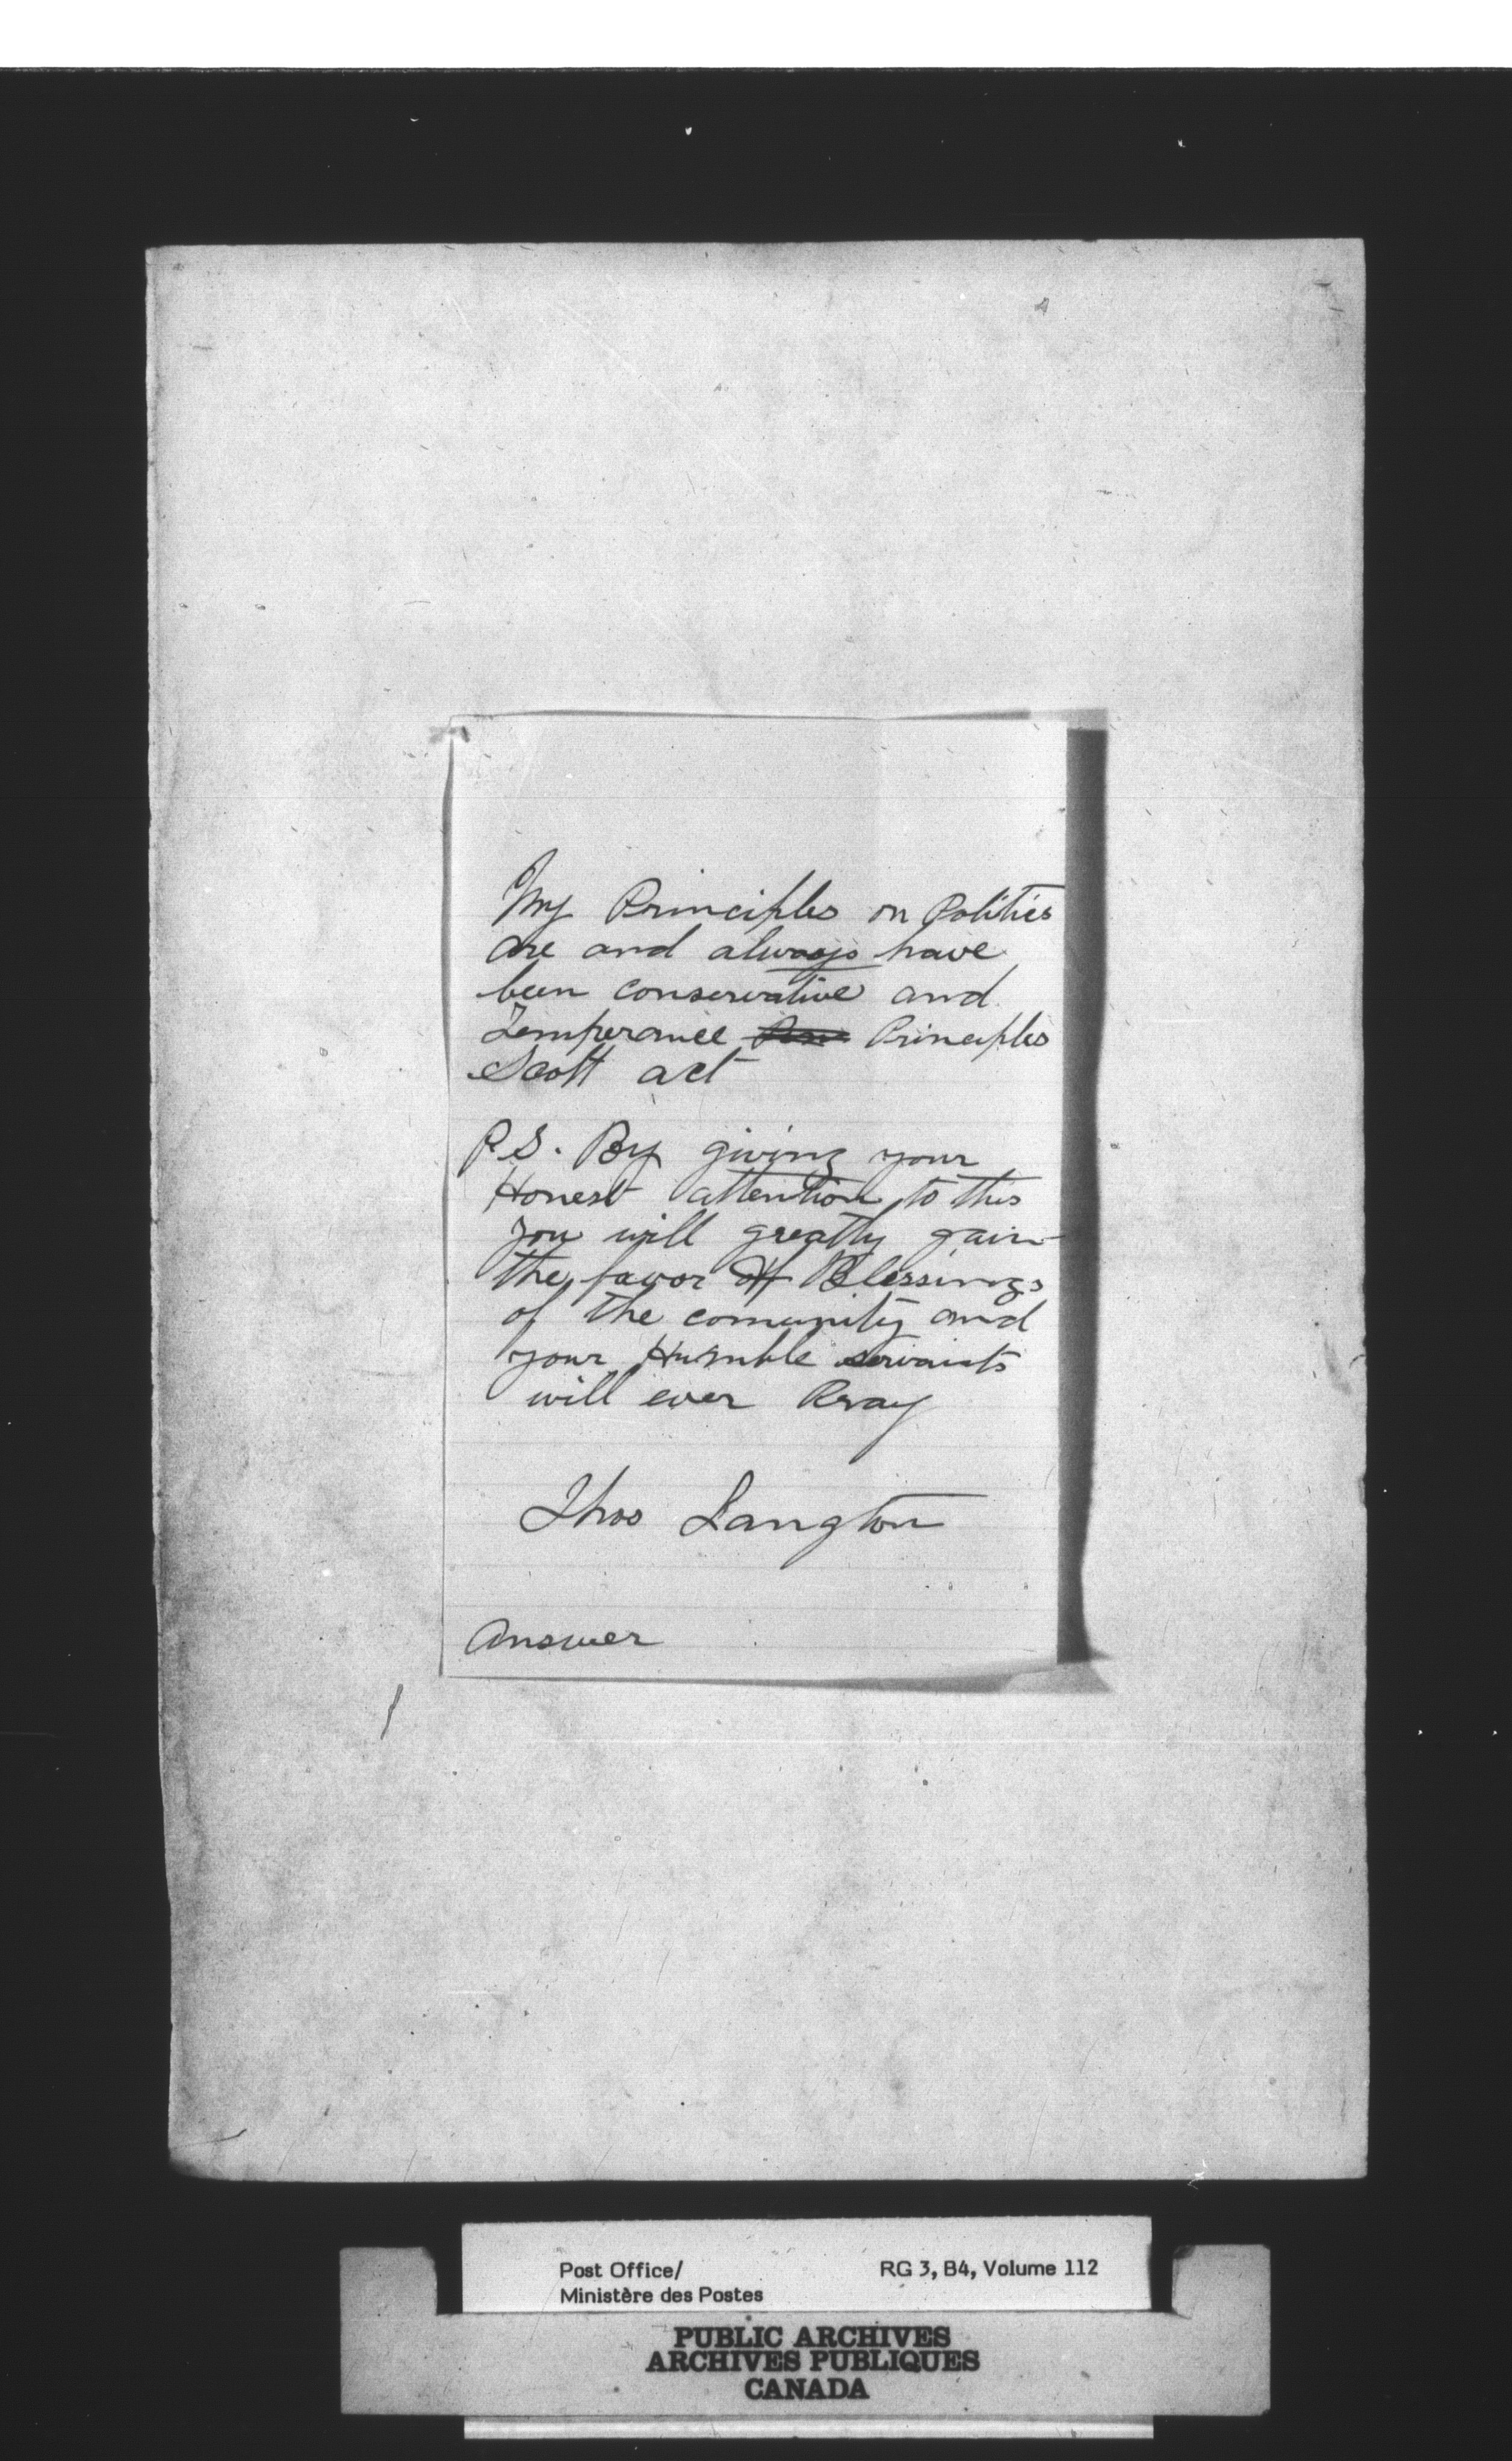 My Principles on Politics
are and always have
been conservative and
Temperance Principles
Scott act
P.S. By giving your
Honest attention to this
you will greatly gain
the favor & Blessings
of the comunity and
your Humble servants
will ever Pray
Thos Langton
Answer
Post Office/
Ministère des Postes
RG 3, B4, Volume 112
PUBLIC ARCHIVES
ARCHIVES PUBLIQUES
CANADA